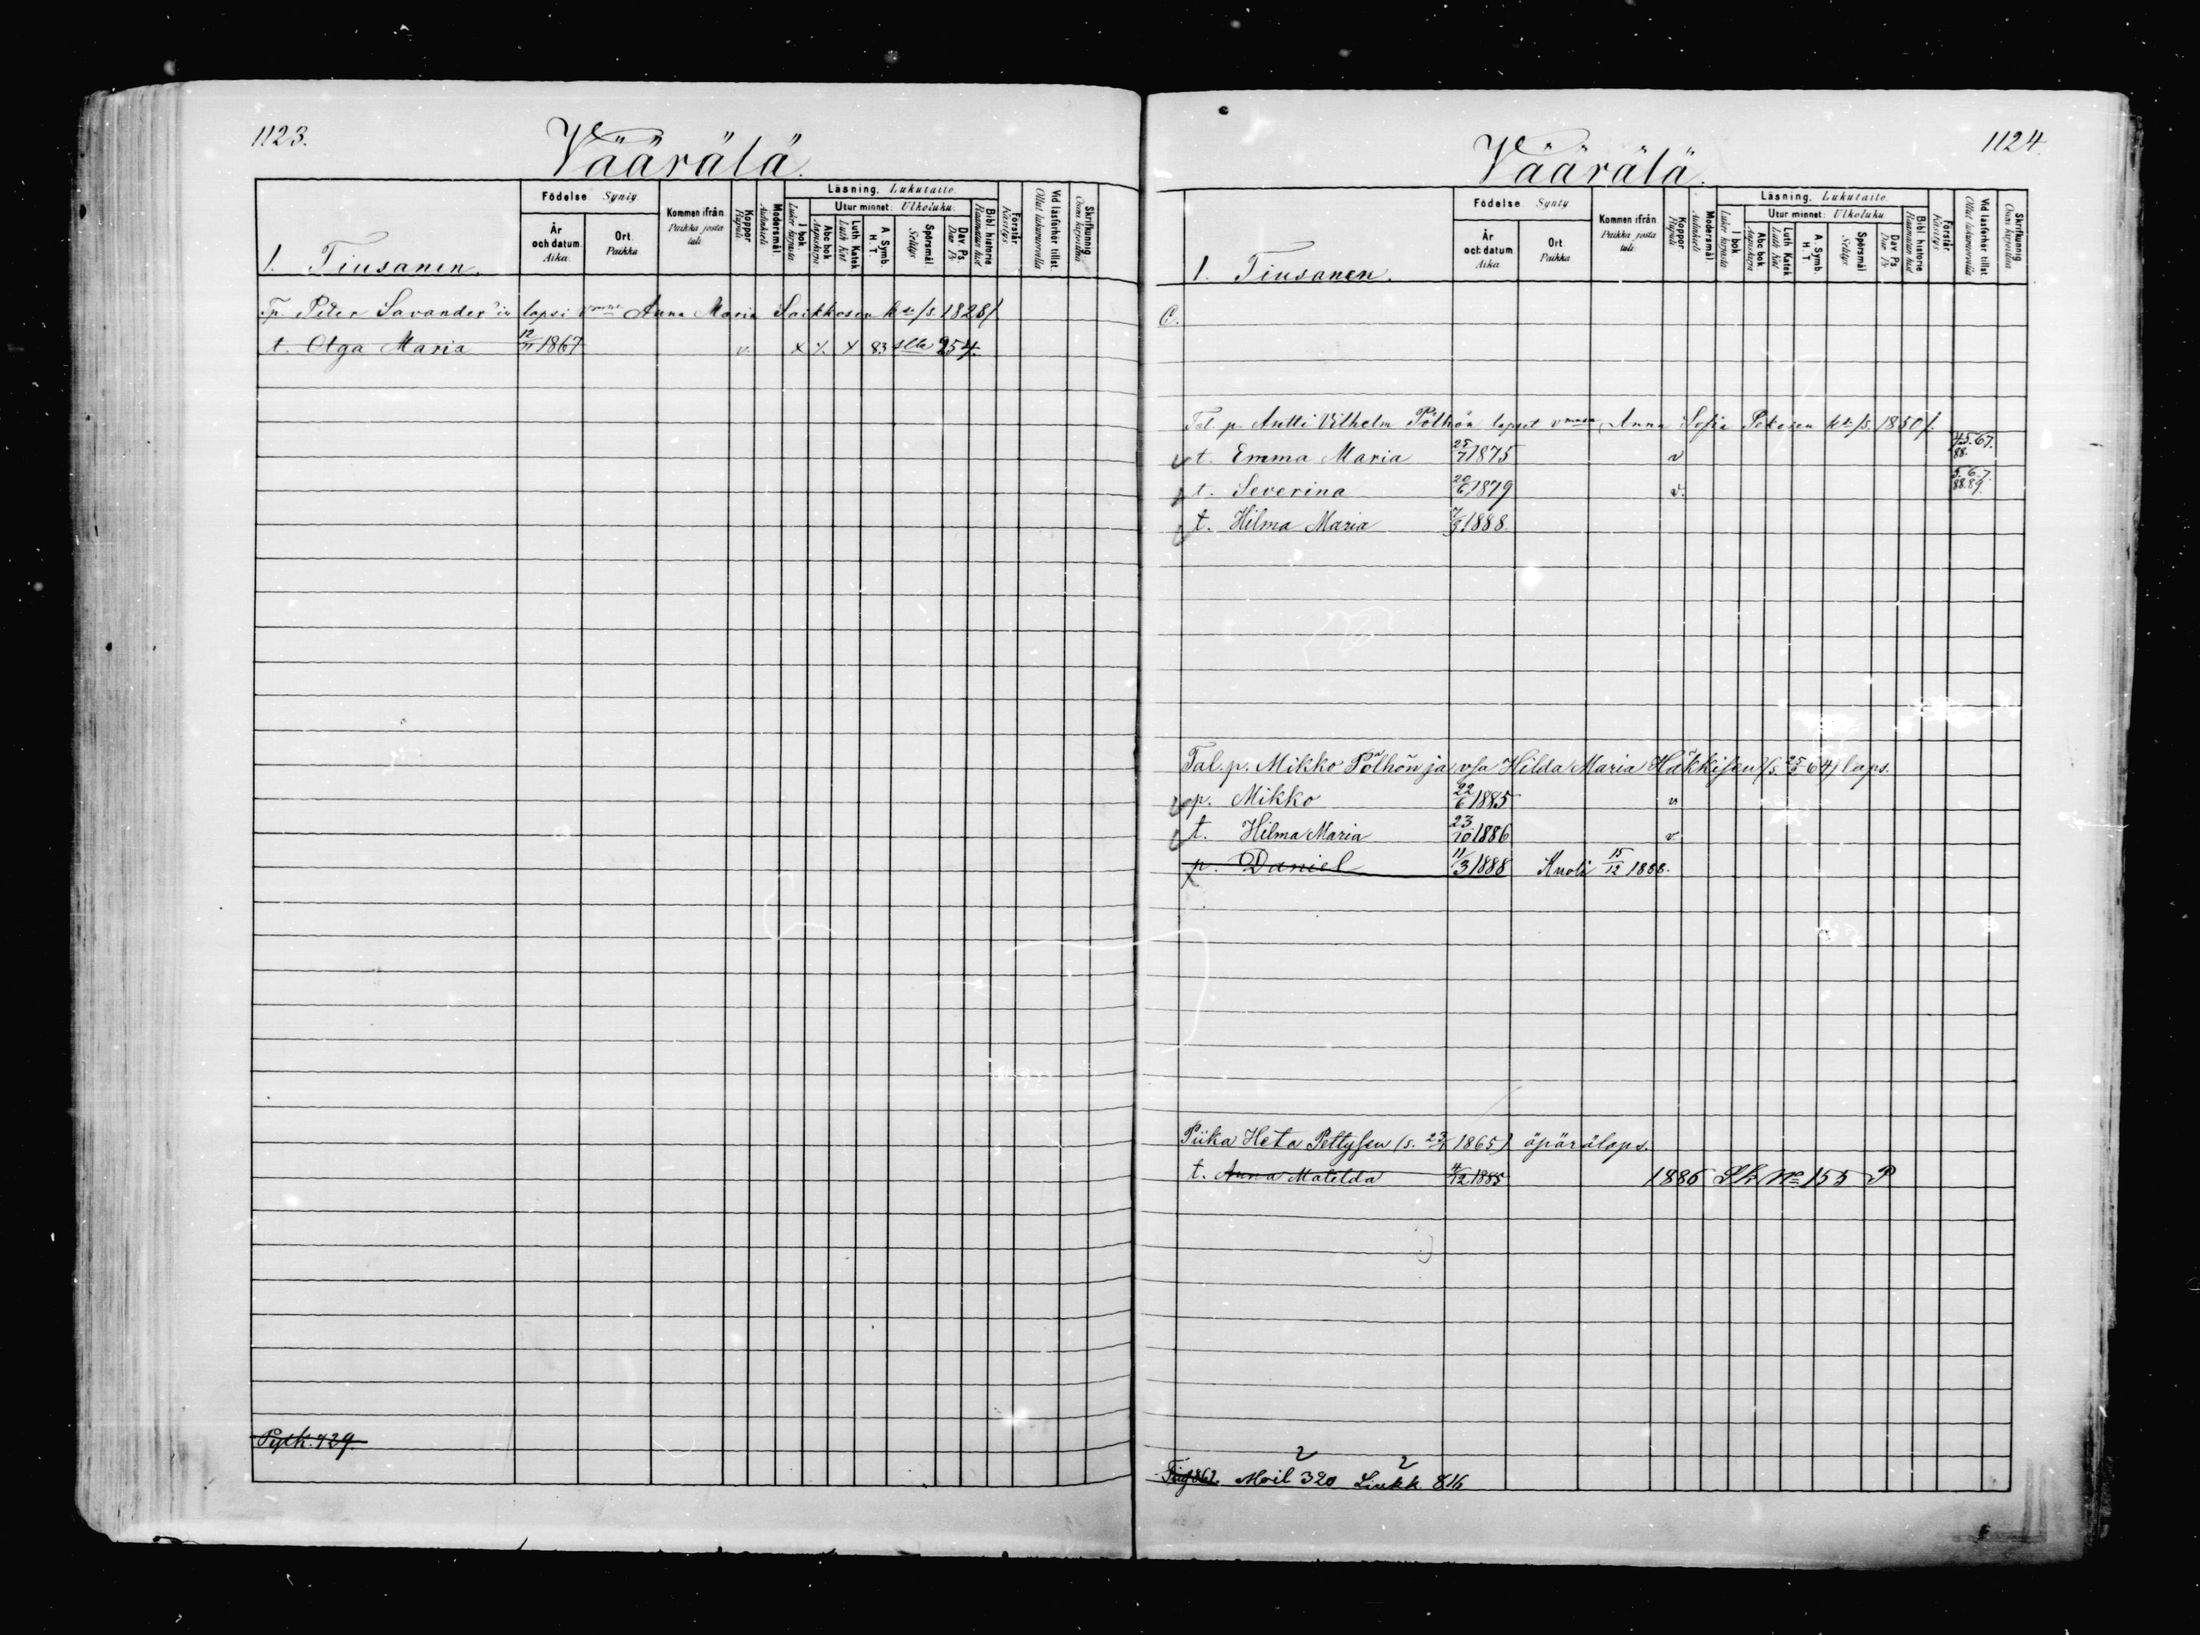 1123.
Väärälä.
Födelse. Synty
År och datum Aika.
Ort. Paikka
Kommen ifrån Paikka josta tuli.
Koppor Rupuli
Modersmål. Äidinkieli
Läsning. Lukutaito.
I bok. Lukee kirjasta
Utur minnet: Ulkoluku.
Abc bok Aapiskirja
Luth Katek Luth Kat
A. Symb. H. T.
Spörsmål Selitys
Dav. Ps. Dav Ps
Bibl. historie Raamatun hist
Förstår. Käsitys
Vid läsförhör tillst. Ollut lukuluvulla
Skrifkunnig. Osaa kirjoittaa
1. Tiusanen.
Tp. Peter Savander'in lapsi vmosa Anna Maria Saikkosen ksta /s. 1828/
t. Olga Maria 12/11 1867 v. x x. x 83 slla 254.
Pytk. 729
1124.
Väärälä.
Födelse Synty
År och datum Aika
Ort. Paikka
Kommen ifrån Paikka josta tuli.
Koppor Rupuli
Modersmål Äidinkieli
Läsning. Lukutaito.
I bok Lukee kirjasta
Utur minnet: Ulkoluku
Abc bok Aapiskirja
Luth Katek Luth Kat
A. Symb. H. T.
Spörsmål Selitys
Dav Ps Dav Ps
Bibl historie Raamatun hist
Förstår. Käsitys
Vid läsförhör tillst Ollut lukuluvulla
Skrifkunnig Osaa kirjoittaa
1. Tiusanen.
C.
Tal. p. Antti Vilhelm Pölhön lapset vmosa Anna Sofia Pekosen ksta /s. 1850/.
t. Emma Maria 25/7 1875 v 45.67. 88.
t. Severina 20/6 1879 v. 5.6.7. 88.89.
t. Hilma Maria 7/3 1888.
Tal. p. Mikko Pölhön ja vsa Hilda Maria Häkkisen (s. 25/6 64) laps.
p. Mikko 22/6 1885 v
t. Hilma Maria 23/10 1886 v.
p. Daniel 11/3 1888 Kuoli 15/12 1888.
Piika Heta Pettysen (s. 23/1 1865) äpärälaps.
t. Anna Matilda 4/12 1885 1886 Lk No 155 P
862. Moil 320 Liukk. 816